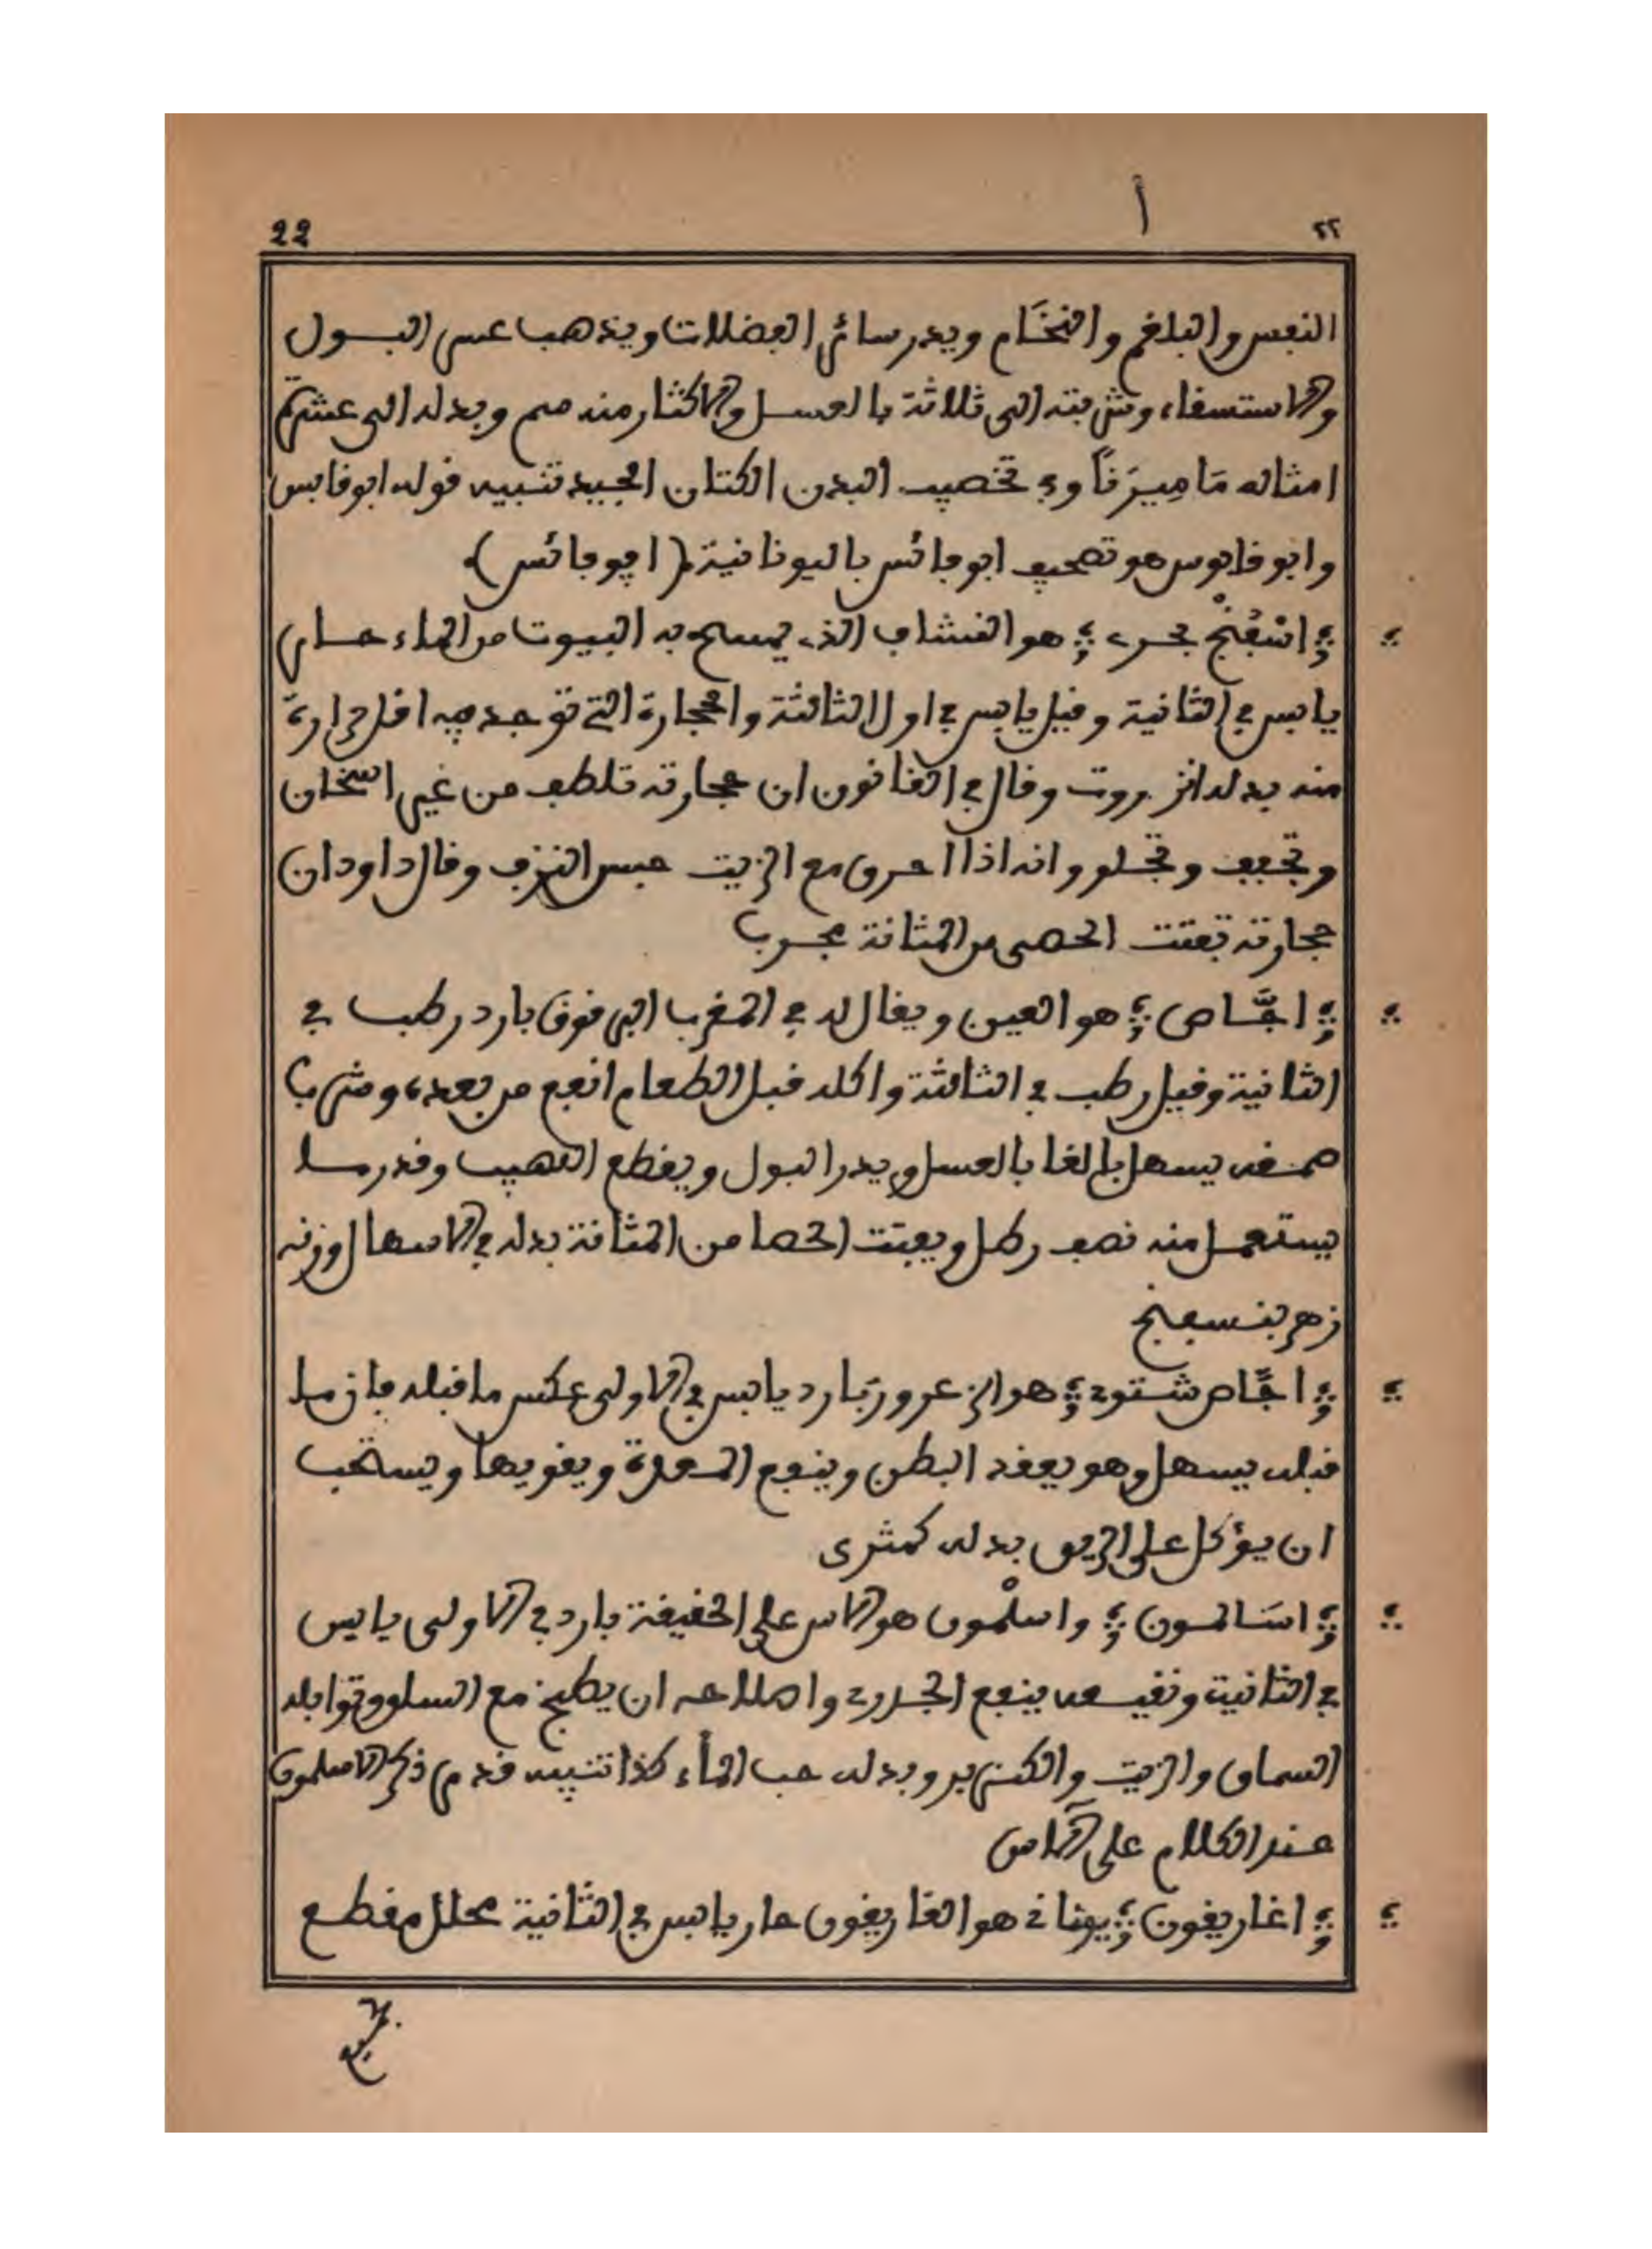 22 أ ٢٢
النفس والبلغم والنخَام ويدر سائر الفضلات ويذهب عسر البول
والاستسقاء وشربته الى ثلاثة بالعسل والاكثار منه سم وبدله الى عشرة
امثاله مَامِيرَناً وفي تخصيب البدن الكتان الجيد تنبيه قوله ابوقابس
وابو قابوس هو تصحيف ابوفائس باليونانية (اپوفائس).
اسْفَنْج بحري هو النشاف الذي يمسح به البيوت من الماء حار
يابس في الثانية وقيل يابس في اول الثالثة والحجارة التي توجد فيه اقل حرارة
منه بدله انزروت وقال في القانون ان حجارته تلطف من غير اسخان
وتجفف وتجلو وانه اذا احرق مع الزيت حبس النزف وقال داود ان
حجارته تفتت الحصى من المثانة مجرب
اجَّاص هو العين ويقال له في المغرب البرقوق بارد رطب في
الثانية وقيل رطب في الثالثة واكله قبل الطعام انفع من بعده وشرب
صمغه يسهل بالغا بالعسل ويدر البول ويقطع اللهيب وقدر ما
يستعمل منه نصف رطل ويفتت الحصا من المثانة بدله في الاسهال وزنه
زهر بنفسج
اجَّاص شتوي هو الزعرور بارد يابس في الاولى عكس ما قبله فان ما
قبله يسهل وهو يعقد البطن وينفع المعدة ويقويها ويستحب
ان يؤكل على الريق بدله كمثرى
اسَالمون واسلْمون هو الاس على الحقيقة بارد في الاولى يابس
في الثانية ونقيعه ينفع الجدري واصلاحه ان يطبخ مع السلق وتوابله
السماق والزيت والكسبر وبدله حب الماء كذا تنبيه قدم ذكر الاسلمون
عند الكلام على الآس
اغاريقون يوناني هو الغاريقون حار يابس في الثانية محلل مقطع